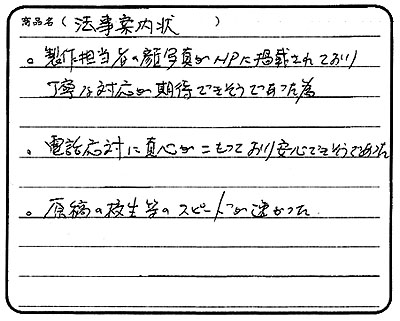 商品名（ 法事案内状 ）
。製作担当者の顔写真がHPに掲載されており
丁寧な対応が期待できそうであった為
。電話応対に真心がこもっており安心できそうであった
。原稿の校生等のスピードが速かった